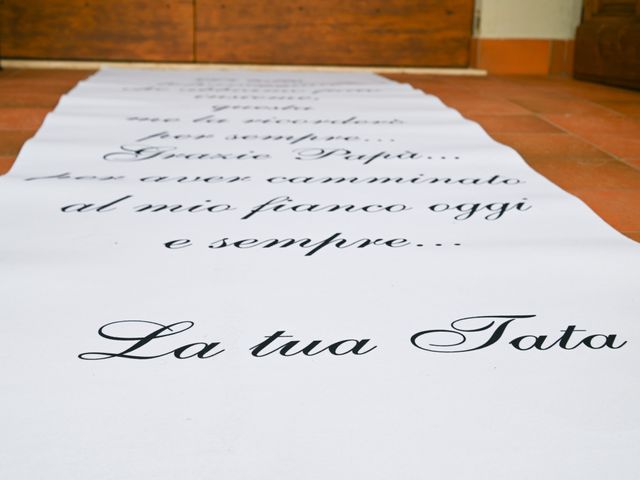 insieme,
questa
me la ricorderò
per sempre...
Grazie Papà...
per aver camminato
al mio fianco oggi
e sempre...
La tua Tata